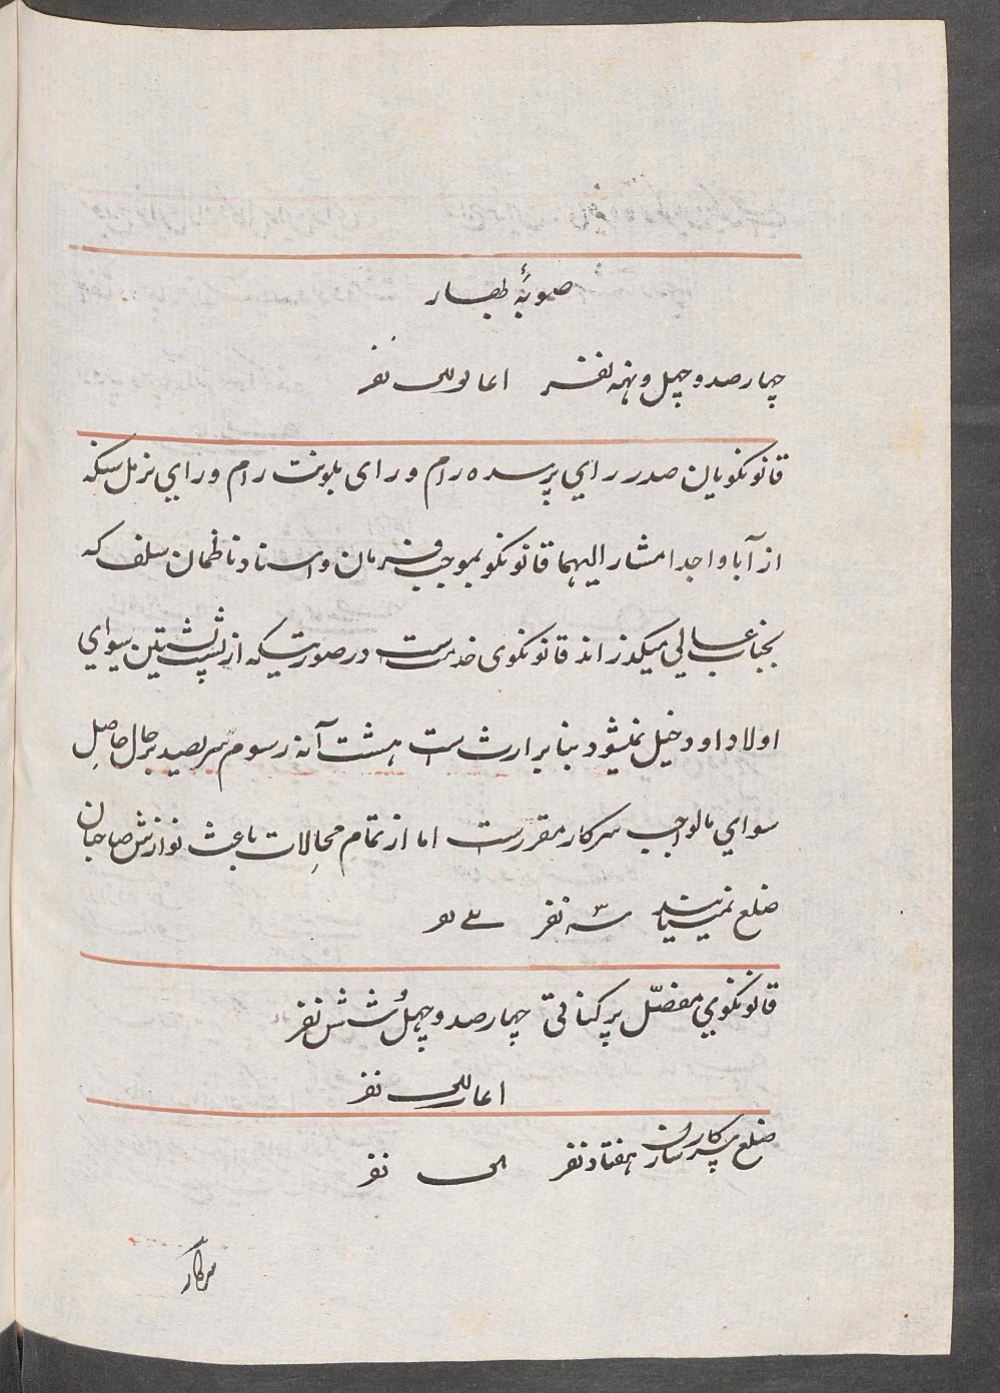 صوبۀ بهار
چهار صد و چهل و نهه نفر نفر
قانونکویان صدر رای پرسده رام و رای بلونت رام و رای نرمل سنکه
از آبا و اجدا مشار الیهما قانونکو بموجب فرمان و اسناد ناظمان سلف که
بجناب عالی میکذراند قانونکوی خدمتست در صورتیکه از پشتین سوای
اولاد او دخیل نمیشود بنا بر ارث است هشت آنه رسوم سر بصید بر حال حاصل
سوای مالواجب سرکار مقررست اما از تمام محالات باعث نوازش صاحبان
ضلع نمییابند سه نفر نفر
قانونکوی مفصّل پرکناتی چهار صد و چهل و شش نفر
نفر
ضلع سرکار سارن هفتاد نفر نفر
سرکار